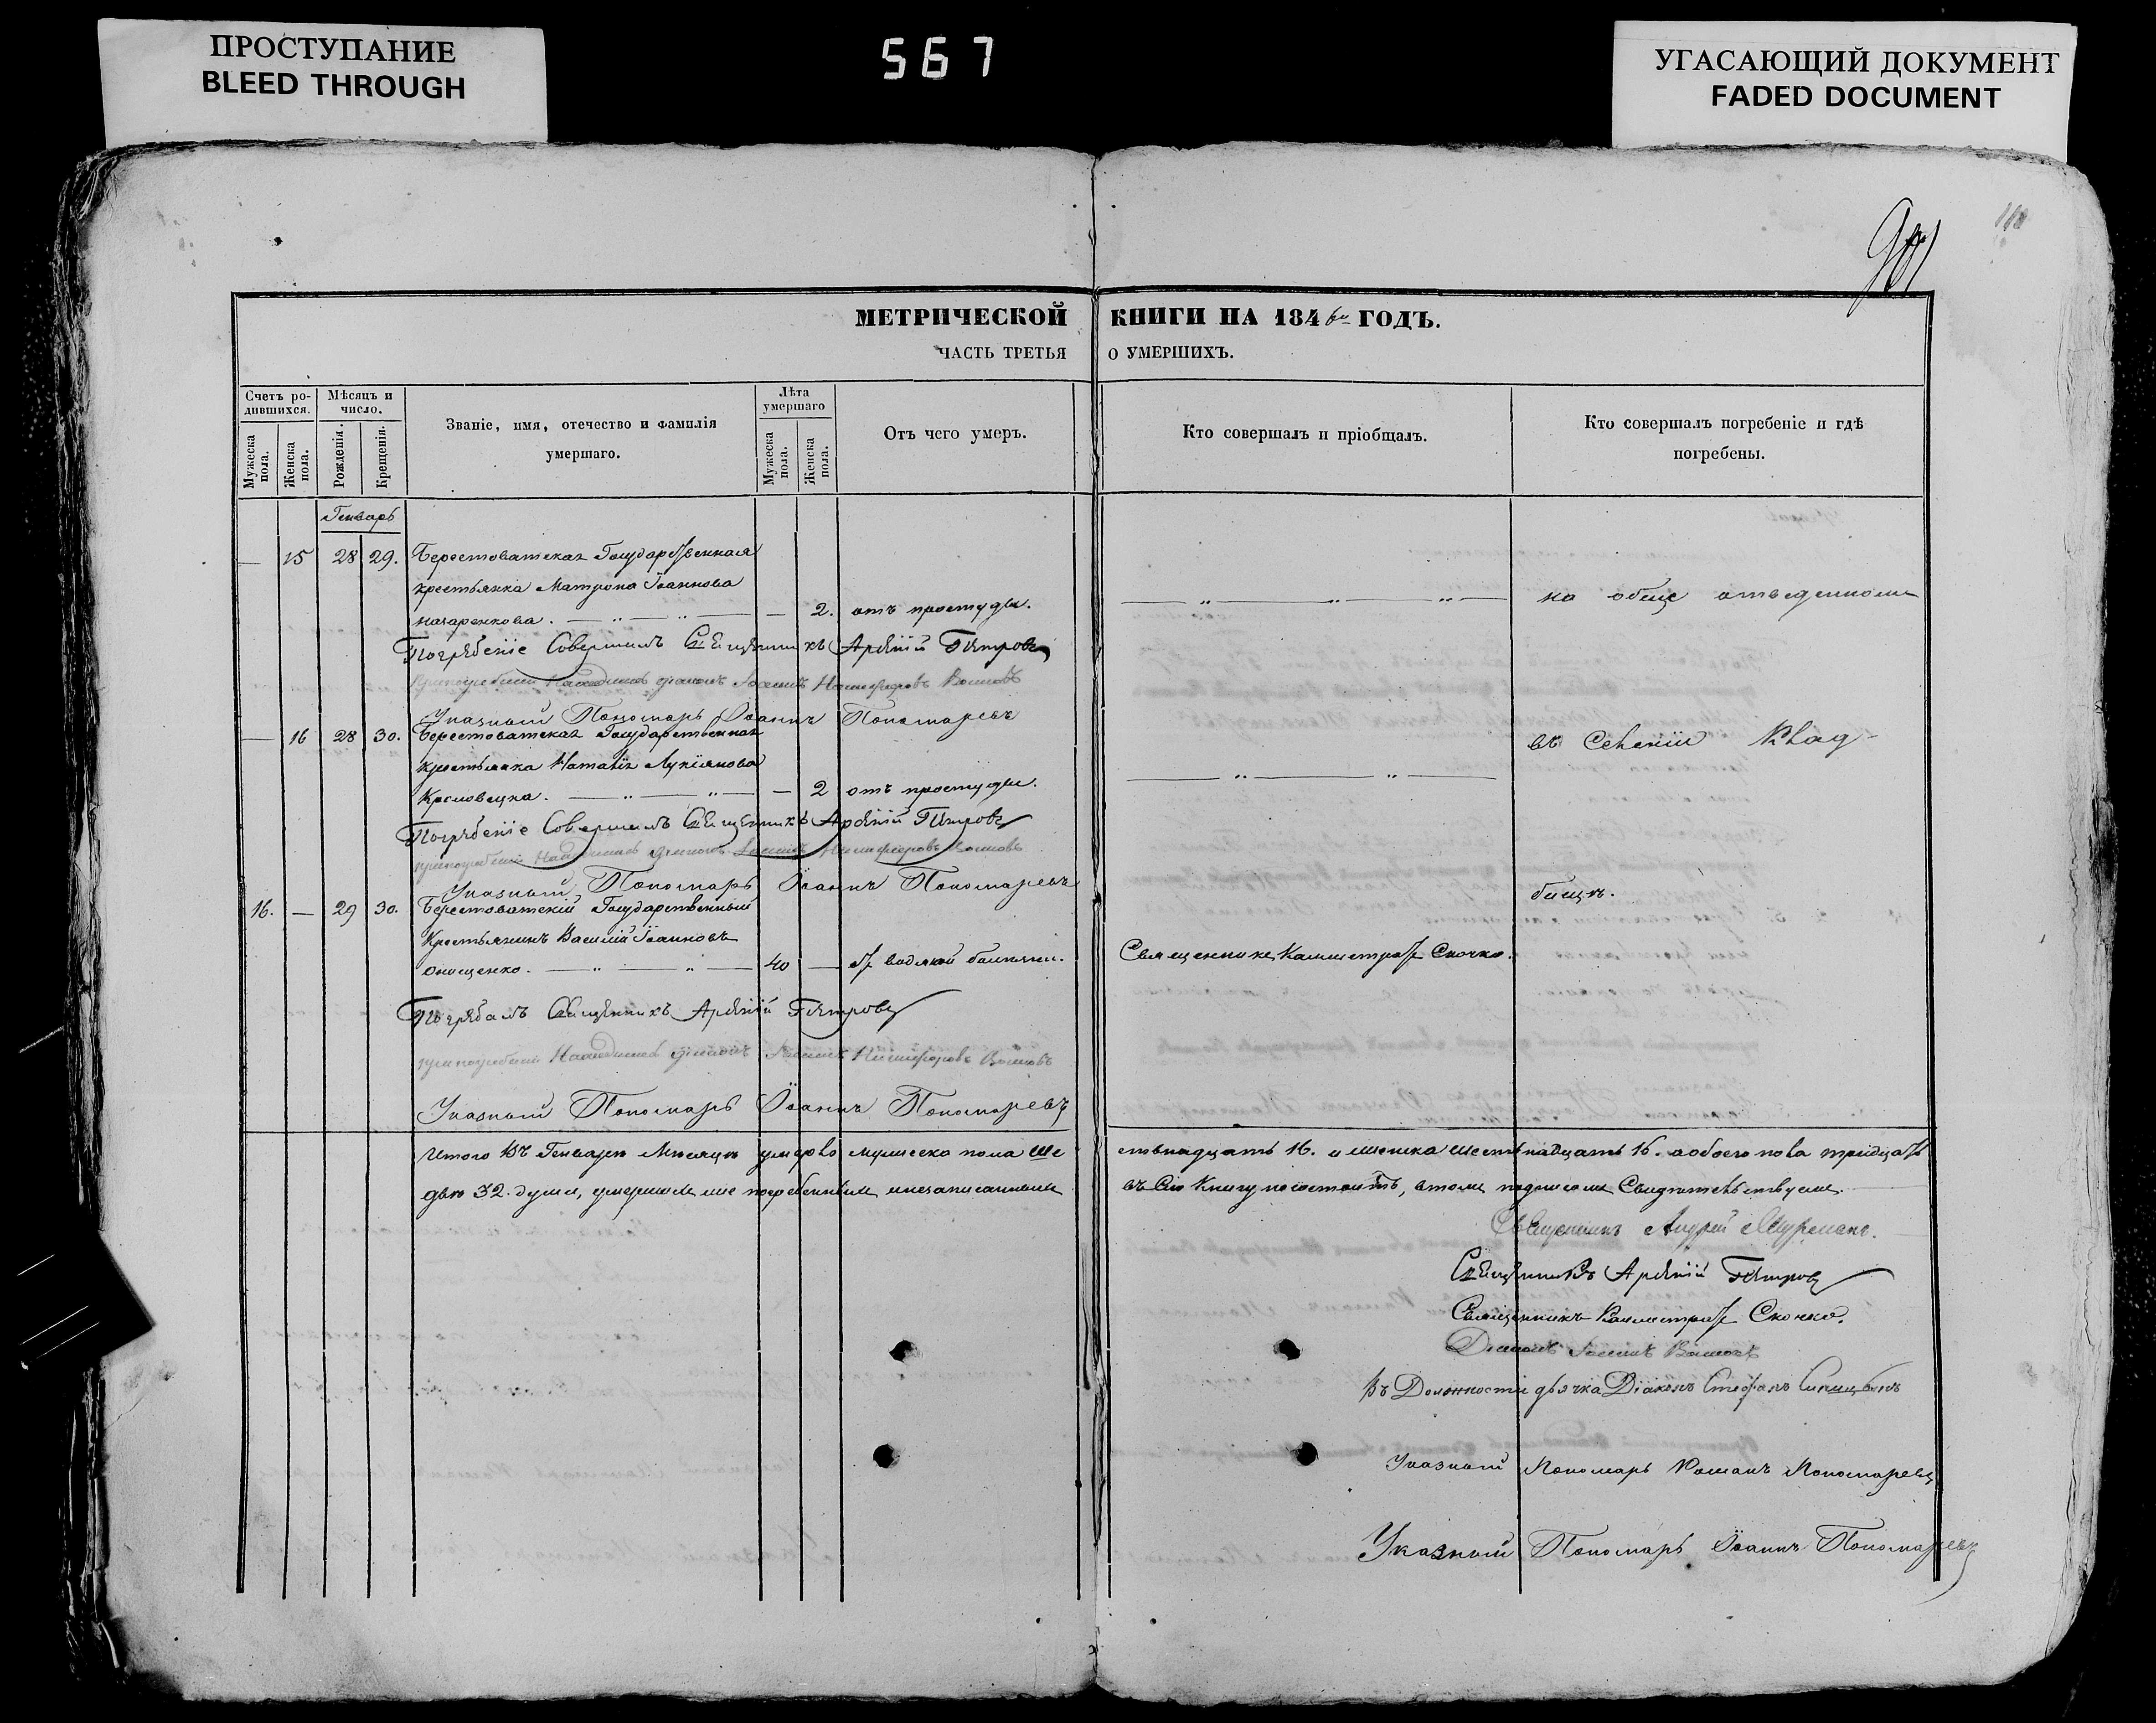 ПРОСТУПАНИЕ
BLEED THROUGH
567
УГАСАЮЩИЙ ДОКУМЕНТ
FADED DOCUMENT
МЕТРИЧЕСКОЙ КНИГИ НА 1846й ГОДЪ.
ЧАСТЬ ТРЕТЬЯ О УМЕРШИХЪ.
Счетъ ро-
дившихся.
Мужеска пола.
Женска пола.
Мѣсяцъ и
число.
Рожденія.
Крещенія.
Званіе, имя, отечество и фамилія
умершаго.
Лѣта
умершаго
Мужеска пола.
Женска пола.
Отъ чего умеръ.
Кто совершалъ и пріобщалъ.
Кто совершалъ погребеніе и гдѣ
погребены.
Генварь
— 15 28 29. Берестоватская Государственная
крестьянка Матрона Іоаннова
назаренкова. — 2. отъ простуды. на обще отведенномъ
Погребеніе Совершилъ Священникъ Арсеній Петровъ
припогребеніи Находился діаконъ Іосифъ Никифоровъ Волковъ
Указный Пономарь Іоаннъ Пономаревъ
— 16 28 30. Берестоватская Государственная
крестьянка Наталія Лукіянова
— 2 отъ простуды.
въ Селеніи Клад-
Погребеніе Совершилъ Священникъ Арсеній Петровъ
припогребеніи Находился діаконъ Іосифъ Никифоровъ Волковъ
Указный Пономарь Іоаннъ Пономаревъ
бищѣ.
16. — 29 30. Берестоватскій Государственный
Крестьянинъ Василій Іоанновъ
онищенко. 40 — отъ водяной болѣзни. Священникъ Каллистратъ Скочко.
Погребалъ Священникъ Арсеній Петровъ
припогребеніи Находился діаконъ Іосифъ Никифоровъ Волковъ
Указный Пономарь Іоаннъ Пономаревъ
Итого Въ Генварѣ Мѣсяцѣ умерло мужеска пола ше
стьнадцать 16. и женска шестьнадцать 16. а обоего пола тридцать
двѣ 32. души, умершихъ же погребенныхъ инезаписанныхъ
въ Сію Книгу несостоитъ, втомъ подписомъ Свидѣтельствуемъ.
Священникъ Андрей
Священникъ Арсеній Петровъ
Священникъ Каллистратъ Скочко.
Діаконъ Іосифъ Волковъ
Въ Должности дьячка Діаконъ Стефанъ
Указный Пономарь Романъ Пономаревъ
Указный Пономарь Іоаннъ Пономаревъ